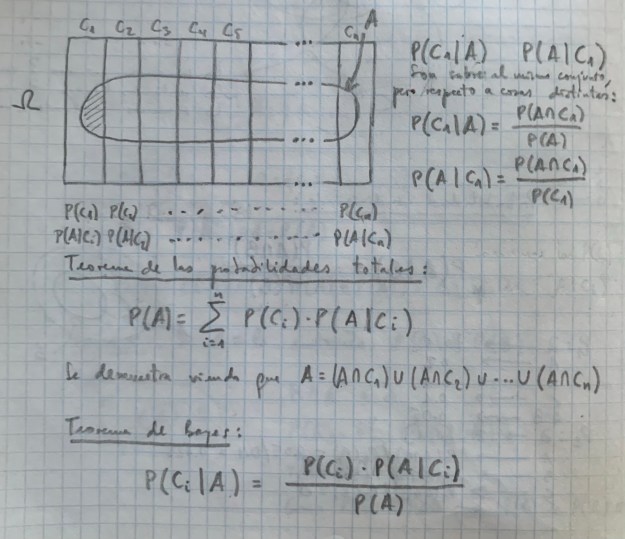 C₁ C₂ C₃ C₄ C₅ ... Cₙ A
Ω
...
...
P(C₁|A) P(A|C₁)
Son sobre el mismo conjunto,
pero respecto a cosas distintas:
P(C₁|A) = P(A∩C₁) / P(A)
P(A|C₁) = P(A∩C₁) / P(C₁)
P(C₁) P(C₂) ............ P(Cₙ)
P(A|C₁) P(A|C₂) ............ P(A|Cₙ)
Teorema de las probabilidades totales:
P(A) = Σᵢ₌₁ⁿ P(Cᵢ)·P(A|Cᵢ)
Se demuestra viendo que A = (A∩C₁) ∪ (A∩C₂) ∪ ... ∪ (A∩Cₙ)
Teorema de Bayes:
P(Cᵢ|A) = P(Cᵢ)·P(A|Cᵢ) / P(A)